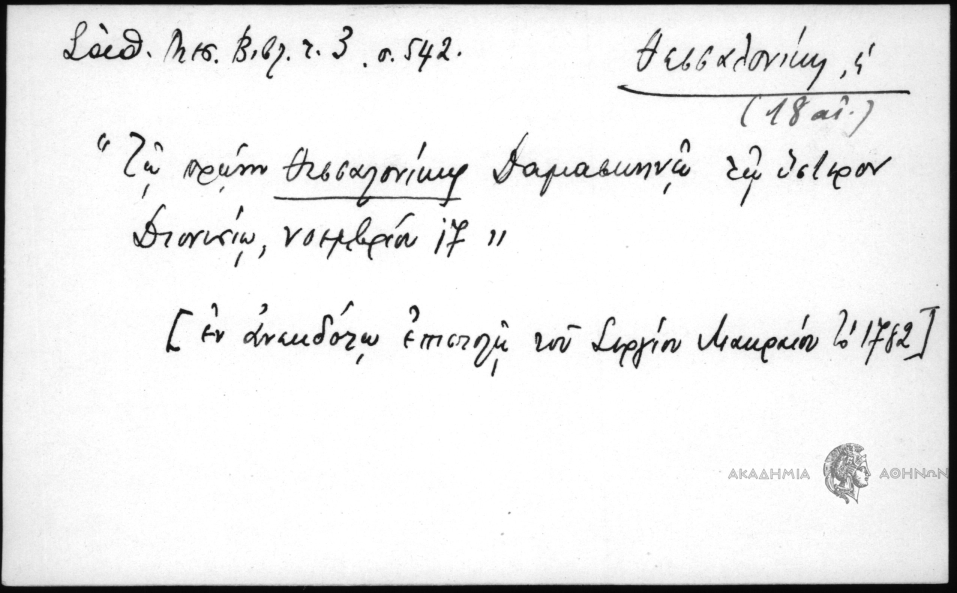 Σάθ. Μεσ. Βιβλ. τ. 3. σ. 542.
Θεσσαλονίκη, ἡ
(18 αἰ.)
“Τῷ πρώην Θεσσαλονίκης Δαμασκηνῷ τῷ ὕστερον
Διονυσίῳ, νοεμβρίου 17”
[ἐν ἀνεκδότῳ ἐπιστολῇ τοῦ Σεργίου Μακραίου τῷ 1782]
ΑΚΑΔΗΜΙΑ ΑΘΗΝΩΝ